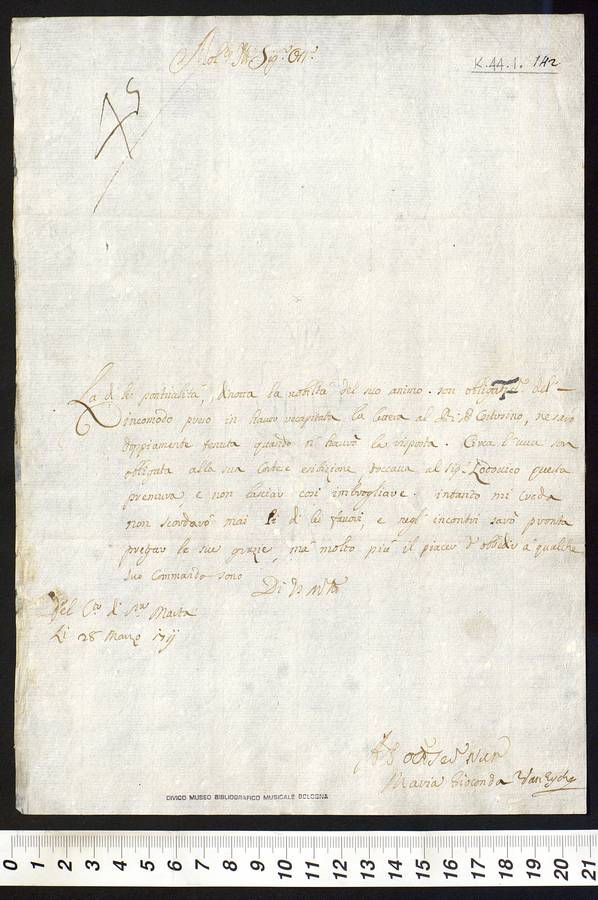 K.44.1. 142
45
La di lei pontualità, denota la nobiltà del suo animo. son obligat.ma del
incomodo preso in haver recapitata la lettera al ne sarò
doppiamente tenuta quando n' haverò la risposta. Circa l'uva son
obligata alla sua Cortese esibizione toccava al Sig.r Lodovico questa
premura, e non lasciar così imbrogliare. intanto mi Creda
non scordarò mai li di lei favori, e negl' incontri sarò pronta
pregar le sue grazie, ma molto più il piacer d' obbedir a qualche
suo Commando sono
Di V.S. M.to
Del C.to di S.ta Marta
Li 28 Marzo 1711
Maria Gioconda Van Eyche
CIVICO MUSEO BIBLIOGRAFICO MUSICALE BOLOGNA
0 1 2 3 4 5 6 7 8 9 10 11 12 13 14 15 16 17 18 19 20 21